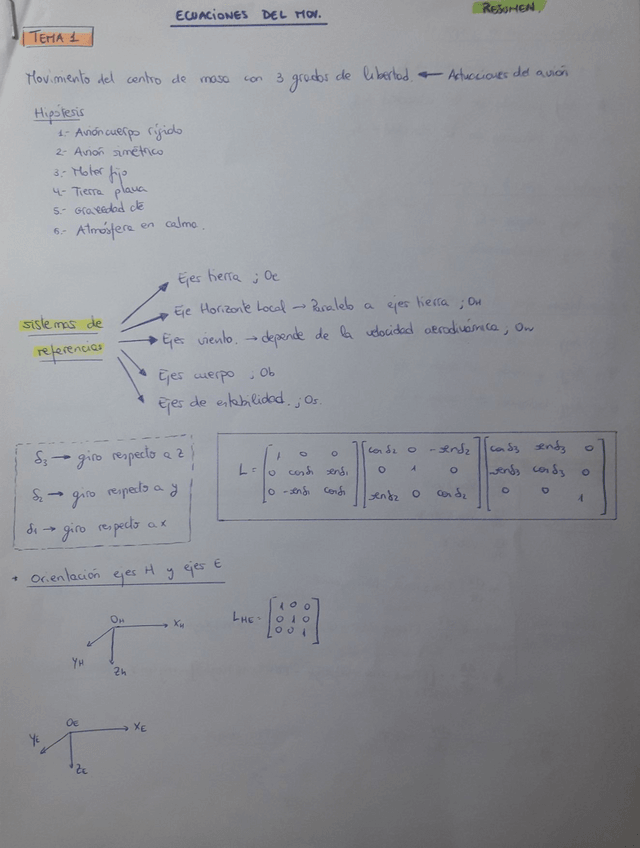 ECUACIONES DEL MOV.
RESUMEN
TEMA 1
Movimiento del centro de masa con 3 grados de libertad ← Actuaciones del avión
Hipótesis
1.- Avión cuerpo rígido
2- Avión simétrico
3.- Motor fijo
4.- Tierra plana
5.- Gravedad cte
6.- Atmósfera en calma.
sistemas de referencias
Ejes tierra ; Oe
Eje Horizonte Local → Paralelo a ejes tierra ; OH
Ejes viento. → depende de la velocidad aerodinámica ; Ow
Ejes cuerpo ; Ob
Ejes de estabilidad. ; Os.
δ3 → giro respecto a z
δ2 → giro respecto a y
δ1 → giro respecto a x
L = [1 0 0] [cosδ2 0 -senδ2] [cosδ3 senδ3 0]
[0 cosδ1 senδ1] [0 1 0] [-senδ3 cosδ3 0]
[0 -senδ1 cosδ1] [senδ2 0 cosδ2] [0 0 1]
* Orientación ejes H y ejes E
OH
XH
YH
Zh
LHE = [1 0 0]
[0 1 0]
[0 0 1]
OE
XE
YE
ZE